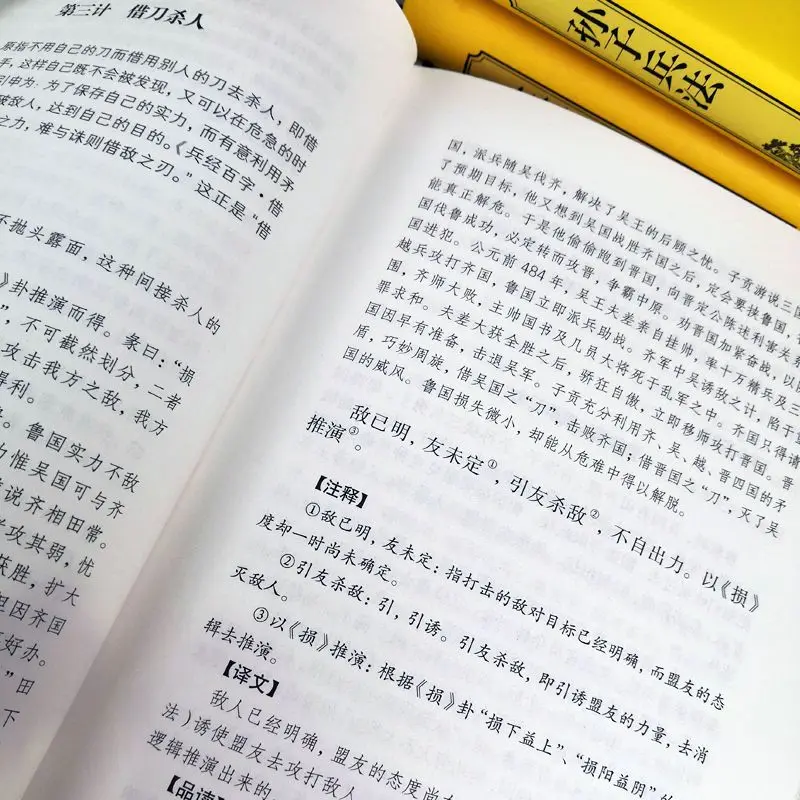 第三计 借刀杀人
原指不用自己的刀而借用别人的刀去杀人,即借
手,这样自己既不会被发现,又可以在危急的时
引申为:为了保存自己的实力,而有意利用矛
破敌人,达到自己的目的。《兵经百字·借
之力,难与诛则借敌之刃。”这正是“借
不抛头露面,这种间接杀人的
》卦推演而得。彖曰:“损
”,不可截然划分,二者
攻击我方之敌,我方
得利。
鲁国实力不敌
为惟吴国可与齐
说齐相田常。
攻其弱,忧
获胜,扩大
但因齐国
好办。
”田
下
国,派兵随吴伐齐,解决了吴王的后顾之忧。子贡游说三国
了预期目标,他又想到吴国战胜齐国之后,定会要挟鲁国,
能真正解危。于是他偷偷跑到晋国,向晋定公陈述利害关系
国伐鲁成功,必定转而攻晋,争霸中原。劝晋国加紧奋战,以防
国进犯。公元前484年,吴王夫差亲自挂帅,率十万精兵及三
越兵攻打齐国,鲁国立即派兵助战。齐军中吴诱敌之计,陷于
围,齐师大败,主帅国书及几员大将死于乱军之中。齐国只得请
罪求和。夫差大获全胜之后,骄狂自傲,立即移师攻打晋国。晋
国因早有准备,击退吴军。子贡充分利用齐、吴、越、晋四国的矛
盾,巧妙周旋,借吴国之“刀”,击败齐国;借晋国之“刀”,灭了吴
国的威风。鲁国损失微小,却能从危难中得以解脱。
敌已明,友未定①,引友杀敌②,不自出力。以《损》
推演③。
【注释】
①敌已明,友未定:指打击的敌对目标已经明确,而盟友的态
度却一时尚未确定。
②引友杀敌:引,引诱。引友杀敌,即引诱盟友的力量,去消
灭敌人。
③以《损》推演:根据《损》卦“损下益上”、“损阳益阴”的
辑去推演。
【译文】
敌人已经明确,盟友的态度尚
法)诱使盟友去攻打敌人
逻辑推演出来的。
【品读】
孙子兵法